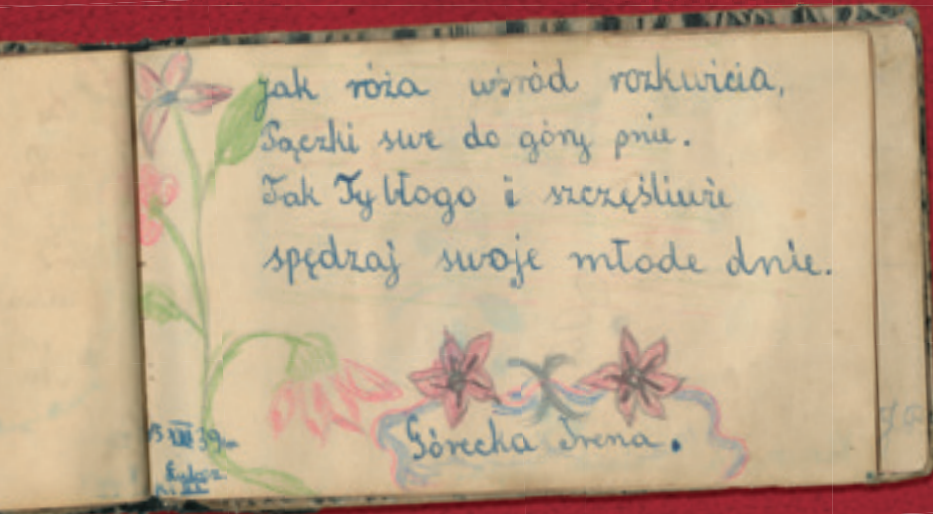 Jak róża wśród rozkwicia,
Pączki swe do góry pnie.
Tak Ty błogo i szczęśliwie
spędzaj swoje młode dnie.
Górecka Irena.
39